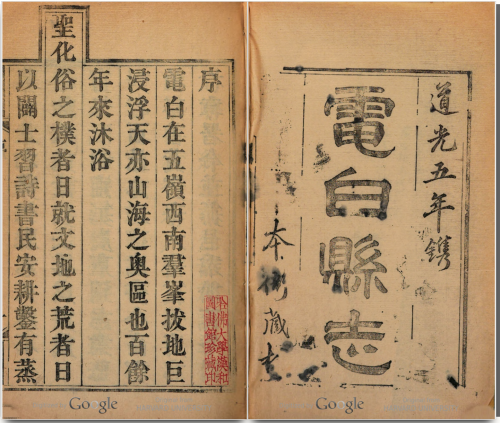 道光五年鐫
電白縣志
本衙藏板
序
電白在五嶺西南羣峯拔地巨
浸浮天亦山海之奧區也百餘
年來沐浴
聖化俗之樸者日就文地之荒者日
以闢士習詩書民安耕鑿有蒸
哈佛大學漢和
圖書館珍藏印
Google
Google